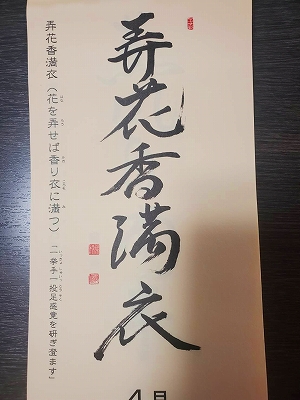 弄花香満衣
弄花香満衣(花を弄せば香り衣に満つ)「一挙手一投足感覚を研ぎ澄ます」
4月